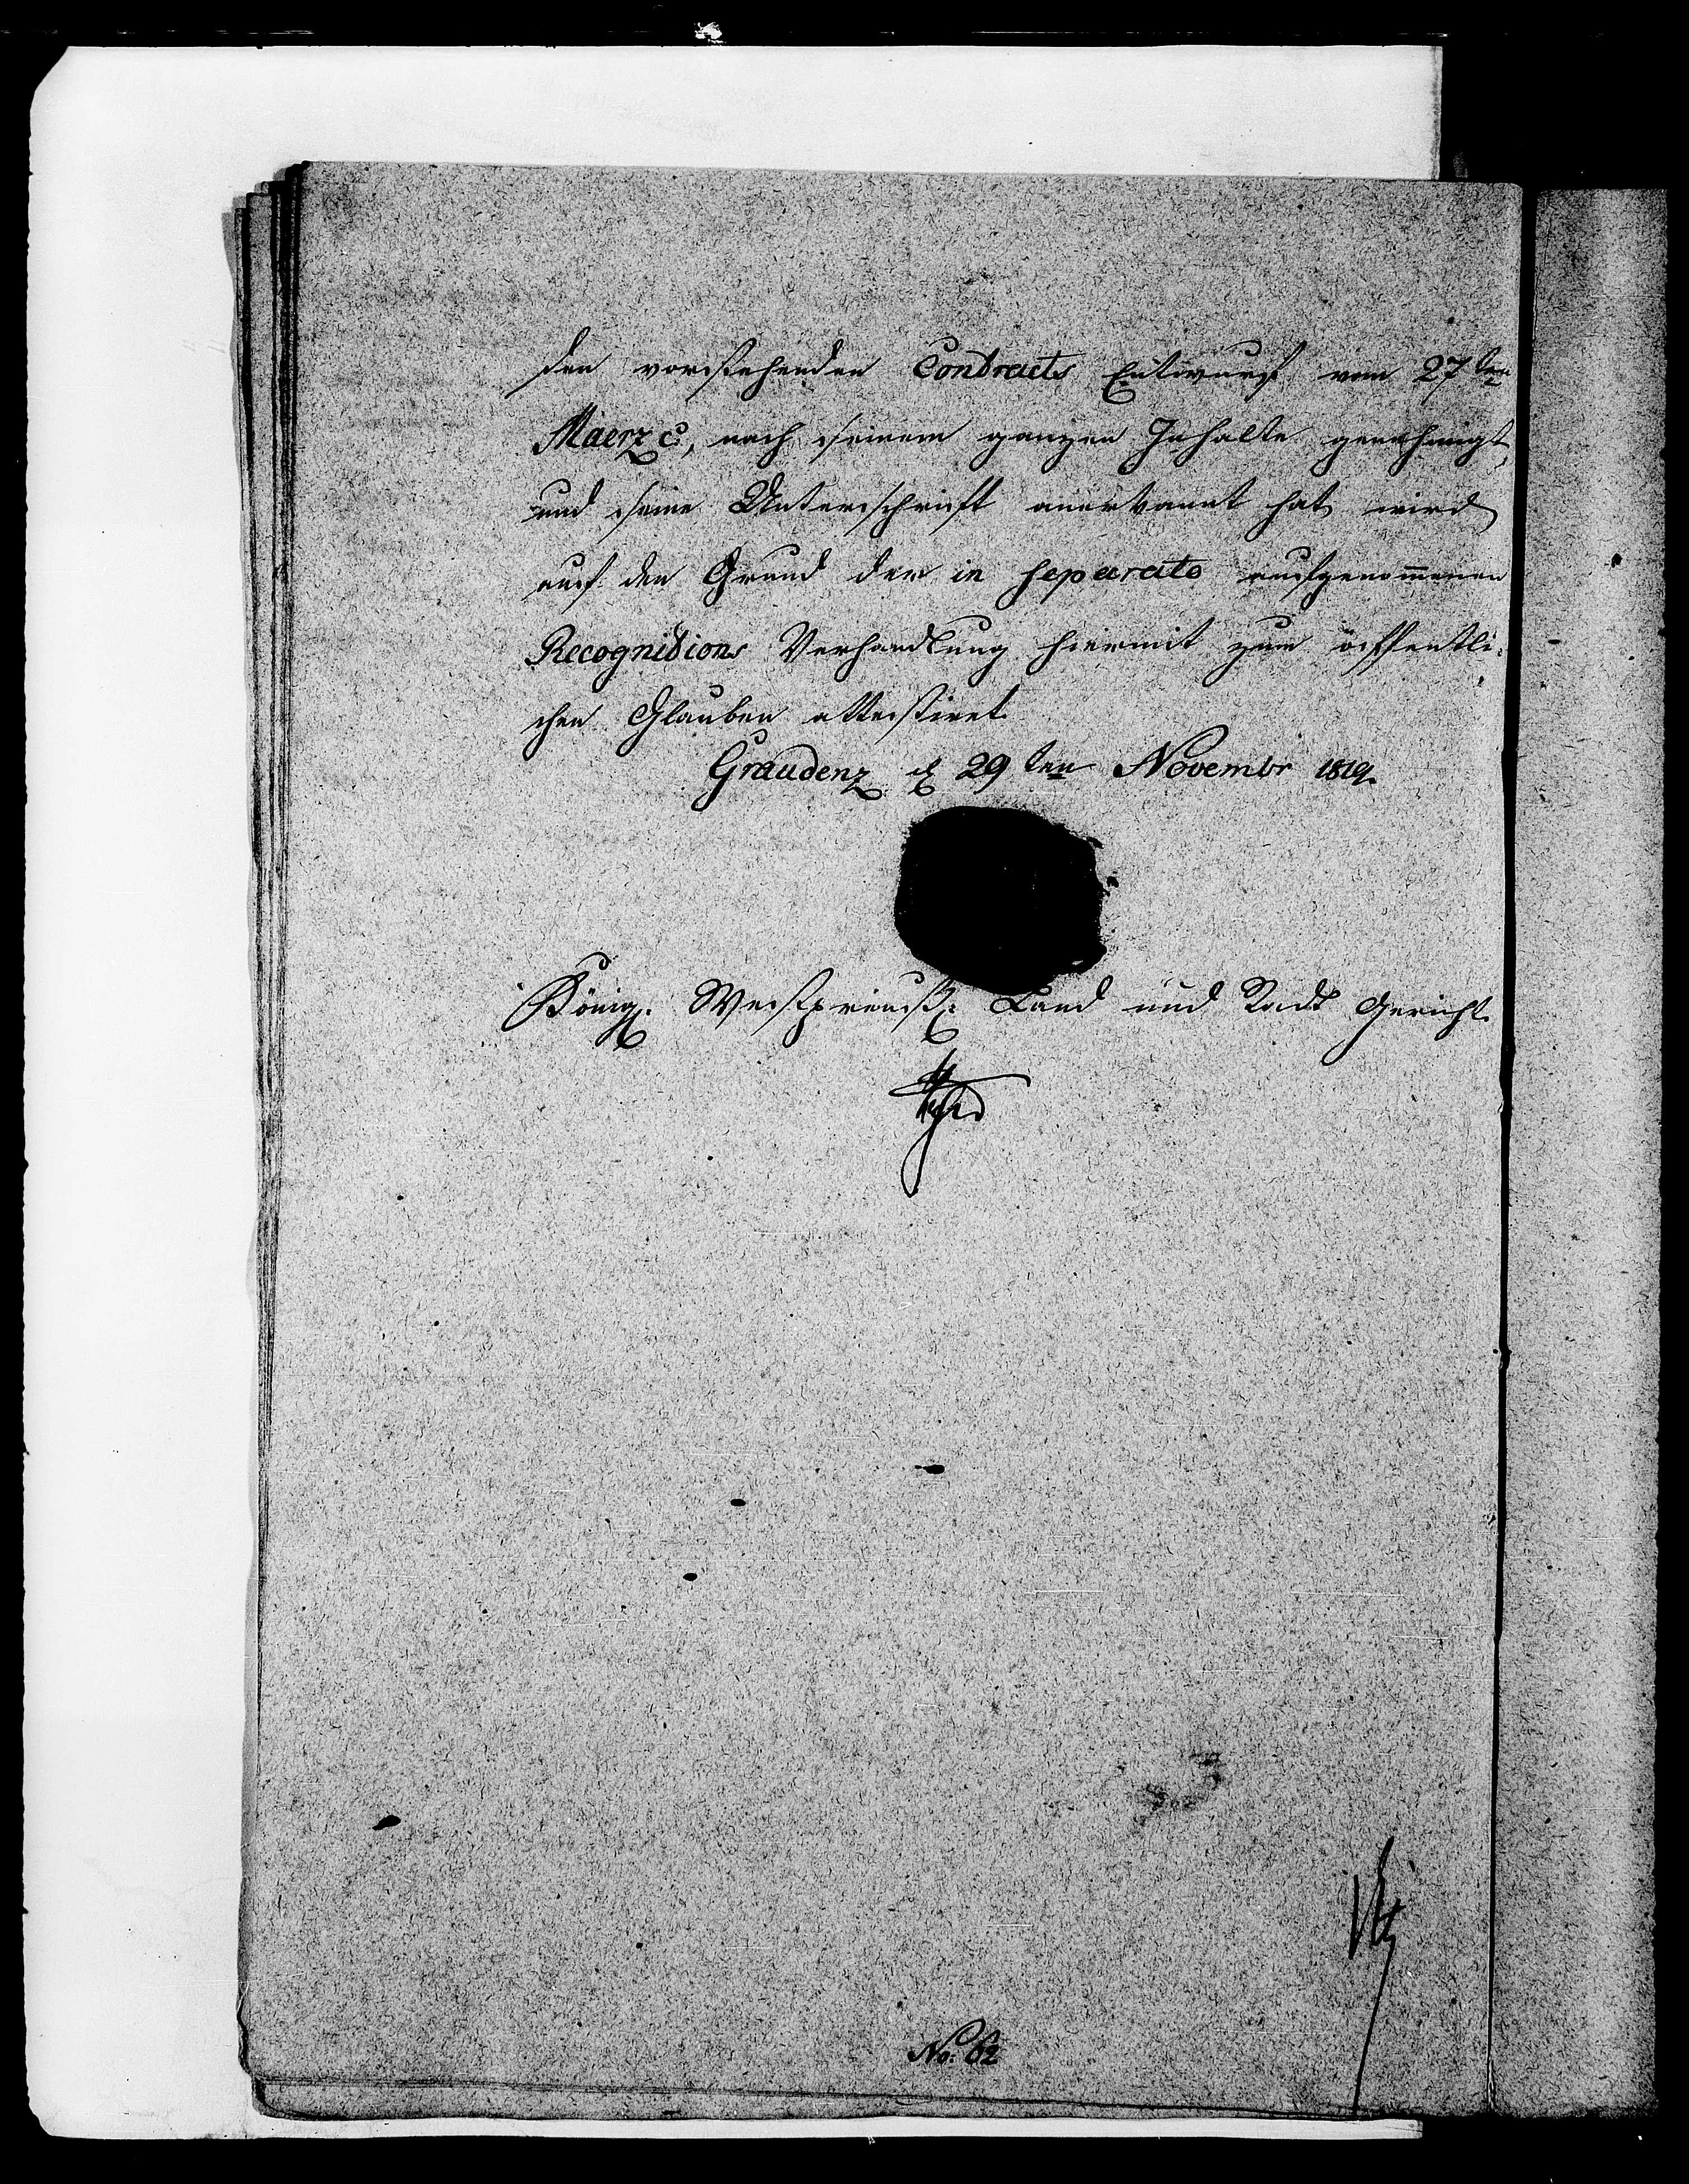 den vorstehenden Contracts Entwurf vom 27ten
Maerz c:, nach seinem ganzen Inhalte genehmigt,
und seine Unterschrift anerkannt hat, wird
auf den Grund der in separato aufgenommenen
Recognitions Verhandlung hiermit zum öffentli-
chen Glauben attestiret.
Graudenz d 29ten Novembr 1819.
Königl. Westpreuß: Land und Stadt Gericht.
No: 62